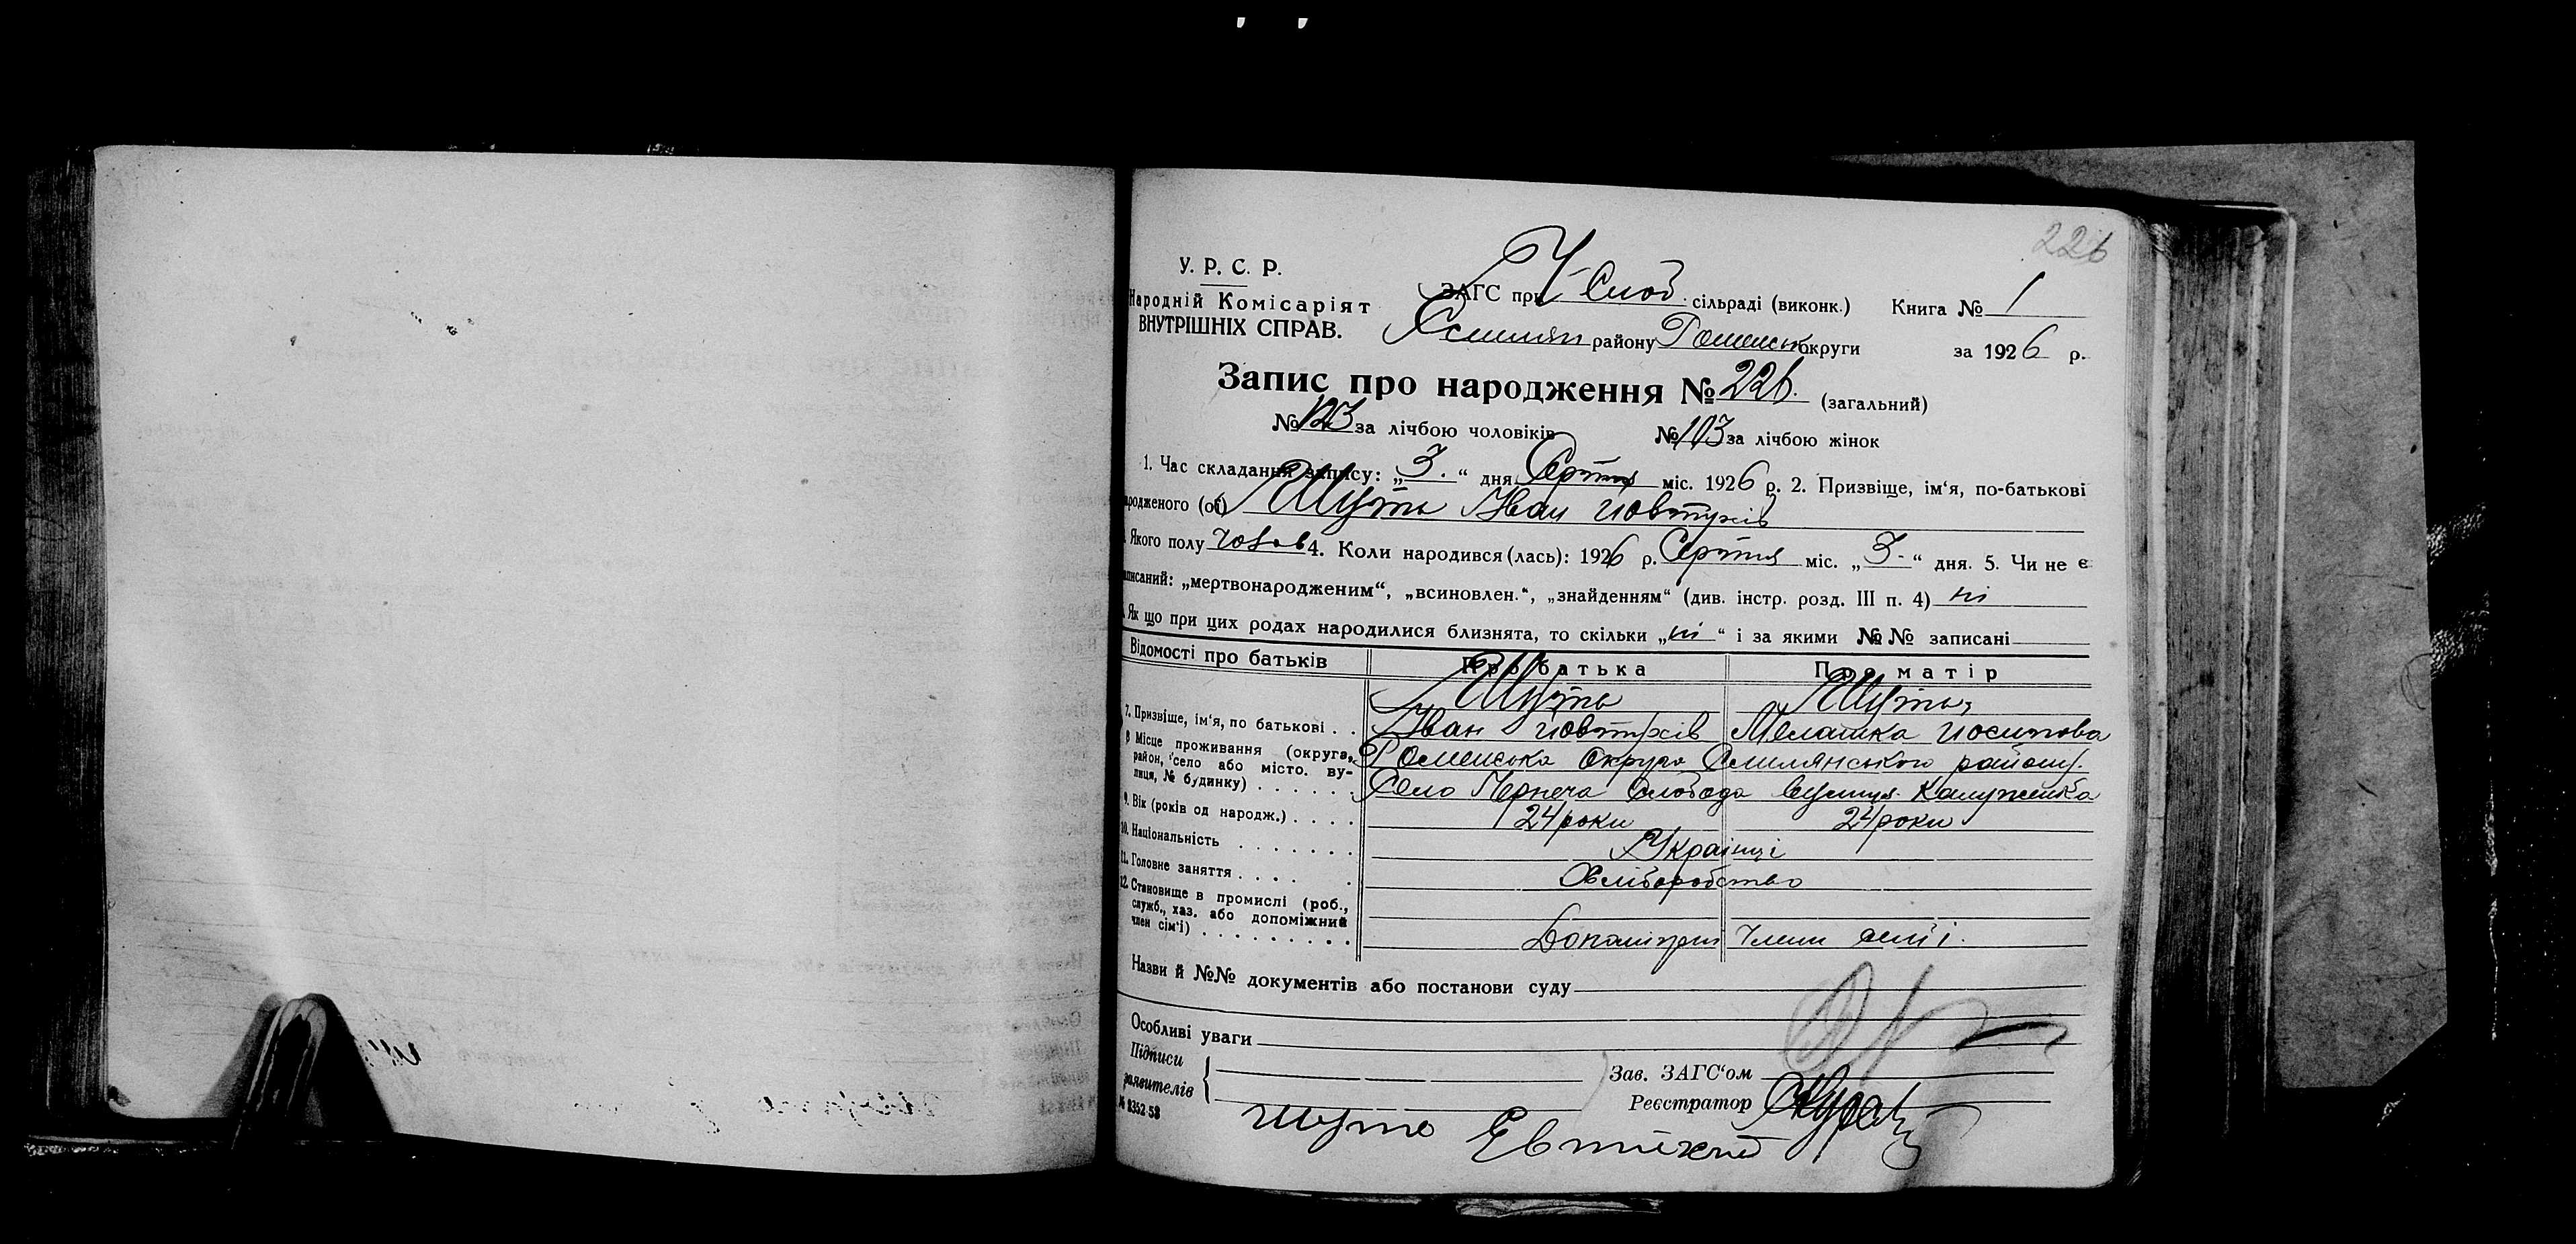 226
У. Р. С. Р.
Народній Комісаріят
ВНУТРІШНІХ СПРАВ.
ЗАГС при Ч-Слоб. сільраді (виконк.) Книга № 1
Смілян району Роменськ округи за 1926 р.
Запис про народження № 226. (загальний)
№ 123 за лічбою чоловіків № 103 за лічбою жінок
1. Час складання запису: „3.“ дня Серпня міс. 1926 р. 2. Призвіще, ім‘я, по-батькові
родженого (ої) Шута Іван Йовтухів
Якого полу 4. Коли народився (лась): 1926 р. Серпня міс. „3.“ дня. 5. Чи не є
записаний: „мертвонародженим“, „всиновлен.“, „знайденням“ (див. інстр. розд. III п. 4) ні
Як що при цих родах народилися близнята, то скільки „ні“ і за якими №№ записані
Відомості про батьків Про батька Про матір
Шута Шута,
7. Призвіще, ім‘я, по батькові . . Іван Йовтухів Мелашка Йосипова
8 Місце проживання (округа, район, село або місто. вулиця, № будинку) . . . . . . Роменська округа Смілянського району.
Село Чернеча Слобода вулиця Калуженка
9. Вік (років од народж.) . . . . 24 роки 24 роки
10. Національність . . . . . . . Українці
11. Головне заняття . . . . . Хліборобство
12. Становище в промислі (роб., служб., хаз. або допоміжний член сім‘ї) . . . . . . . . . Допоміжн Члени семї.
Назви й №№ документів або постанови суду
Особливі уваги
Підписи заявителів
Зав. ЗАГС‘ом
Реєстратор
№ 8352-53
шута Евтихий